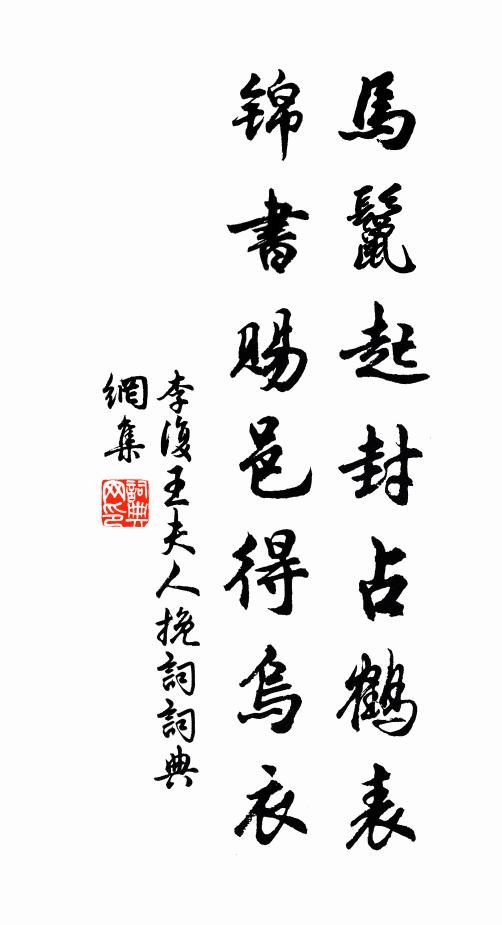 馬鬣起封占鶴表
錦書賜邑得烏衣
李復王夫人挽詞詞典
網集
詞典
网印